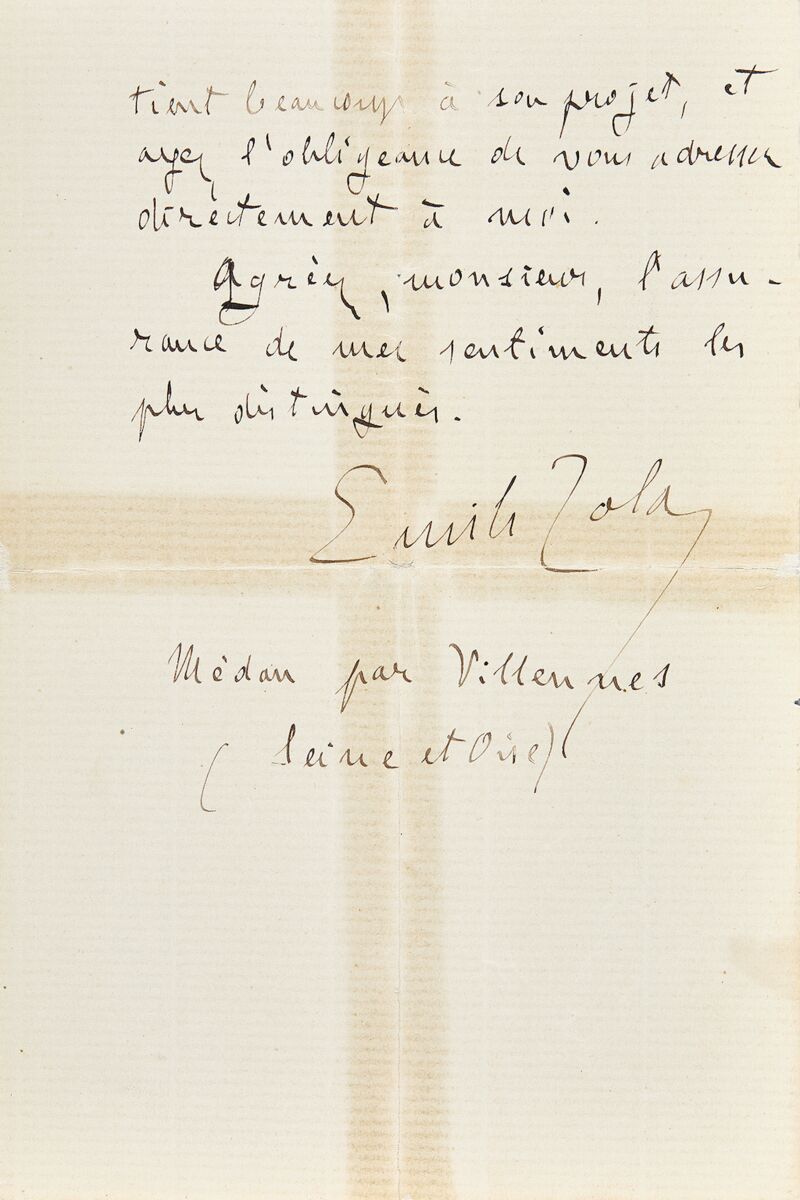 tient beaucoup à son projet, et
ayez l'obligeance de vous adresser
directement à moi.
Agréez, monsieur, l'assu-
rance de mes sentiments les
plus distingués.
Emile Zola
Médan par Villennes
(Seine et Oise)